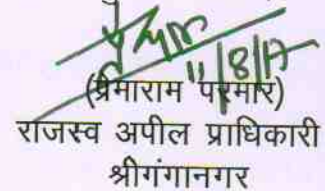 11/8/17
(प्रेमाराम परमार)
राजस्व अपील प्राधिकारी
श्रीगंगानगर